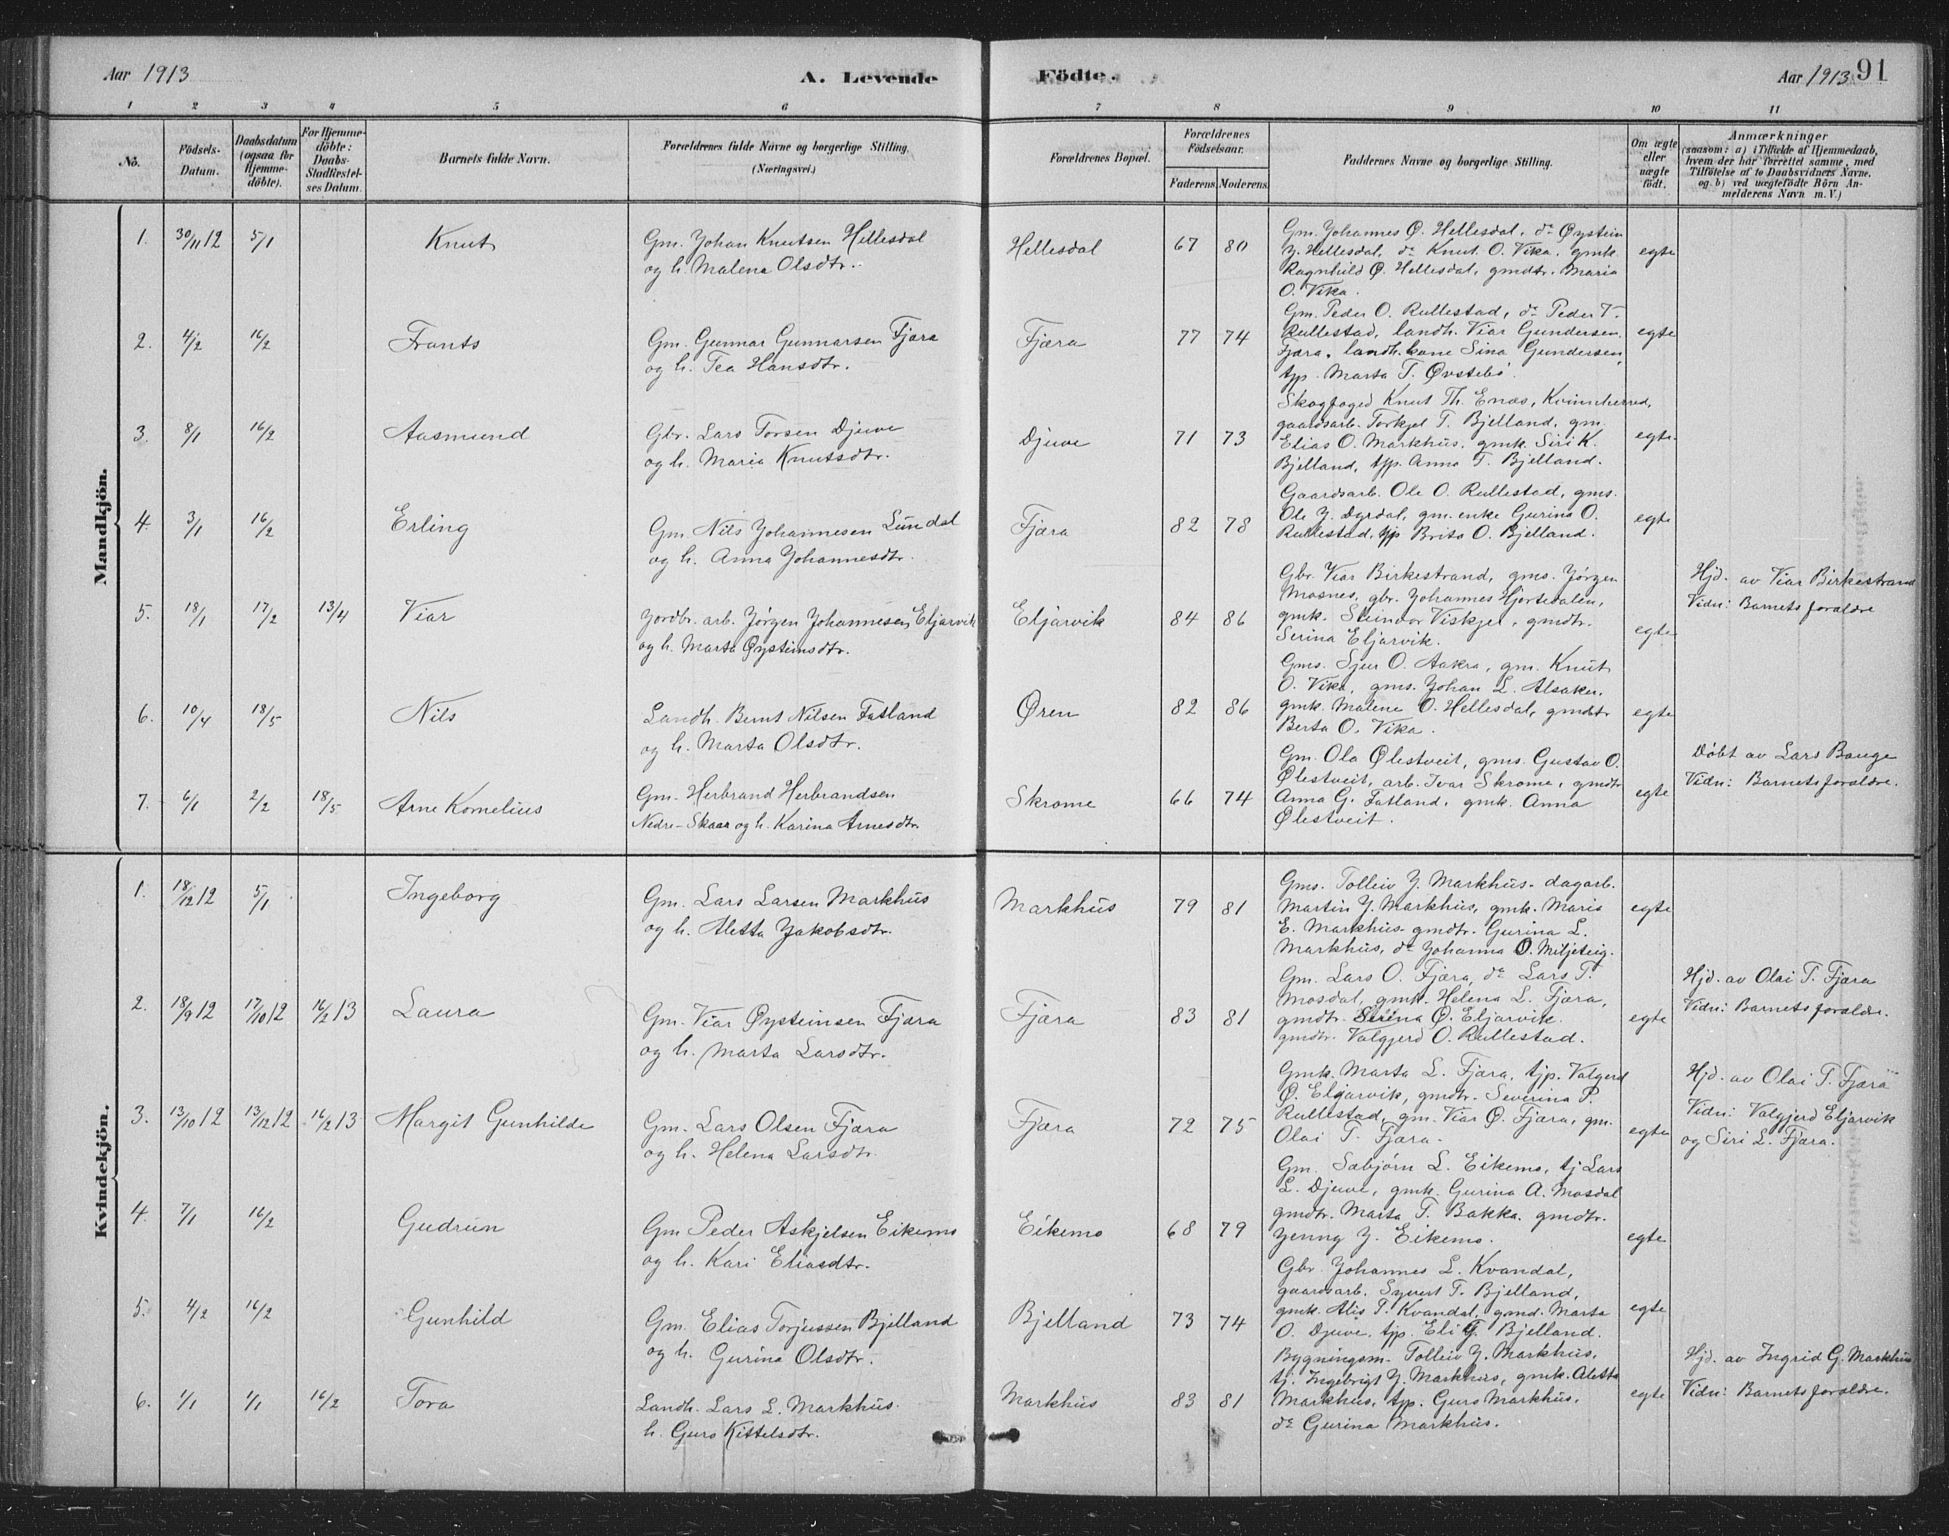 Aar 1913
A. Levende Födte.
Aar 1913 91
1 2 3 4 5 6 7 8 9 10 11
No.
Födsels-
Datum.
Daabsdatum
(ogsaa for
Hjemme-
döbte).
For Hjemme-
döbte:
Daabs-
Stadfæstel-
ses Datum.
Barnets fulde Navn.
Forældrenes fulde Navne og borgerlige Stilling.
(Næringsvei.)
Forældrenes Bopæl.
Forældrenes
Födselsaar.
Faderens. Moderens.
Faddernes Navne og borgerlige Stilling.
Om ægte
eller
uægte
født.
Anmærkninger
(saasom: a) i Tilfælde af Hjemmedaab,
hvem der har forrettet samme, med
Tilföielse af to Daabsvidners Navne.
og b) ved uægtefödte Börn An-
melderens Navn m. V.)
Mandkjön.
1. 30/11 12 5/1 Knut
Gm. Johan Knutsen Hellesdal
og h. Malena Olsdtr.
Hellesdal 67 80
Gm. Johannes Ø. Hellesdal, do Øystein
J. Hellesdal, do Knut O. Vika, gmk.
Ragnhild Ø. Hellesdal, gmdtr. Maria
O. Vika.
egte
2. 4/2 16/2 Frants
Gm. Gunnar Gunnarsen Fjæra
og h. Tea Hansdtr.
Fjæra 77 74
Gm. Peder O. Rullestad, do Peder T.
Rullestad, landh. Viar Gundersen
Fjæra, landh. kone Sina Gundersen,
tjp. Marta T. Øvstebø.
egte
3. 8/1 16/2 Aasmund
Gbr. Lars Torsen Djuve
og h. Maria Knutsdtr.
Djuve 71 73
Skogfoged Knut Th. Enæs, Kvinnherred,
gaardsarb. Torkjel T. Bjelland, gm.
Elias O. Markhus, gmk. Siri K.
Bjelland, tjp. Anna T. Bjelland.
egte.
4 3/1 16/2 Erling
Gm. Nils Johannesen Lundal
og h. Anna Johannesdtr.
Fjæra 82 78
Gaardsarb. Ole O. Rullestad, gms.
Ole J. Dyrdal, gm. enke Gurina O.
Rullestad, tjp Brita O. Bjelland.
egte
5. 18/1 17/2 13/4 Viar
Jordbr. arb. Jørgen Johannesen Eljarvik
og h. Marta Øysteinsdtr.
Eljarvik 84 86
Gbr. Viar Birkestrand, gms. Jørgen
Mosnes, gbr. Johannes Hjortedalen,
gmk. Steindor Viskjel, gmdtr.
Serina Eljarvik.
egte
Hjd. av Viar Birkestrand
Vidn: Barnets foraldre
6. 10/4 18/5 Nils
Landh. Bernt Nilsen Fatland
og h. Marta Olsdtr.
Øren 82 86
Gms. Sjur O. Aakra, gm. Knut
O. Vika, gms. Johan L. Alsaker,
gmk. Malene O. Hellesdal, gmdtr
Berta O. Vika.
egte
7. 6/1 2/2 18/5 Arne Kornelius
Gm. Herbrand Herbrandsen
Nedre-Skaar og h. Karina Arnesdtr.
Skrome 66 74
Gm. Ola Ølestveit, gms. Gustav O.
Ølestveit, arb. Ivar Skrome, gmdtr
Anna G. Fatland, gmk. Anna
Ølestveit.
egte
Døbt av Lars Bauge
Vidn: Barnets foraldre.
Kvindekjön.
1. 18/12 12 5/1 Ingeborg
Gm. Lars Larsen Markhus
og h. Aletta Jakobsdtr.
Markhus 79 81
Gms. Tolleiv J. Markhus. dagarb.
Martin J. Markhus, gmk. Maria
E. Markhus gmdtr. Gurina L.
Markhus, do Johanna O. Miljeteig.
egte
2. 18/9 12 17/10 12 16/2 13 Laura
Gm. Viar Øysteinsen Fjæra
og h. Marta Larsdtr.
Fjæra 83 81
Gm. Lars O. Fjæra, do Lars T.
Mosdal, gmk. Helena L. Fjæra,
gmdtr. Serina Ø. Eljarvik.
gmdtr. Valgjerd O. Rullestad.
egte
Hjd. av Olai T. Fjæra
Vidn: Barnets foraldre.
3. 13/10 12 13/12 12 16/2 13 Margit Gunhilde
Gm. Lars Olsen Fjæra
og h. Helena Larsdtr.
Fjæra 72 75
Gmk. Marta L. Fjæra, tjp. Valgerd
Ø. Elgarvik, gmdtr. Severina P.
Rullestad, gm. Viar Ø. Fjæra, gm.
Olai T. Fjæra.
egte
Hjd. av Olai T. Fjæra
Vidn: Valgjerd Eljarvik
og Siri L. Fjæra.
4. 7/1 16/2 Gudrun
Gm Peder Askjelsen Eikemo
og h. Kari Eliasdtr.
Eikemo 68 79
Gm. Sæbjørn L. Eikemo, tj Lars
L. Djuve, gmk. Gurina A. Mosdal
gmdtr. Marta T. Bakka. gmdtr.
Jenny J. Eikemo.
egte
5. 4/2 16/2 Gunhild
Gm. Elias Torjussen Bjelland
og h. Gurina Olsdtr.
Bjelland 73 74
Gbr. Johannes L. Kvandal,
gaardsarb. Syvert T. Bjelland,
gmk. Alis T. Kvandal, gmd. Marta
O. Djuve, tjp. Eli G. Bjelland.
egte
6. 1/1 1/1 16/2 Tora
Landh. Lars L. Markhus.
h. Guro Kittelsdtr.
Markhus 83 81
Bygningsm. Tolleiv J. Markhus,
tj. Ingebrigt J. Markhus, gmk. Aletta
Markhus, tjp. Guro Markhus,
do Gurina Markhus.
egte
Hjd. av Ingrid G. Markhus
Vidn: Barnets foraldre.